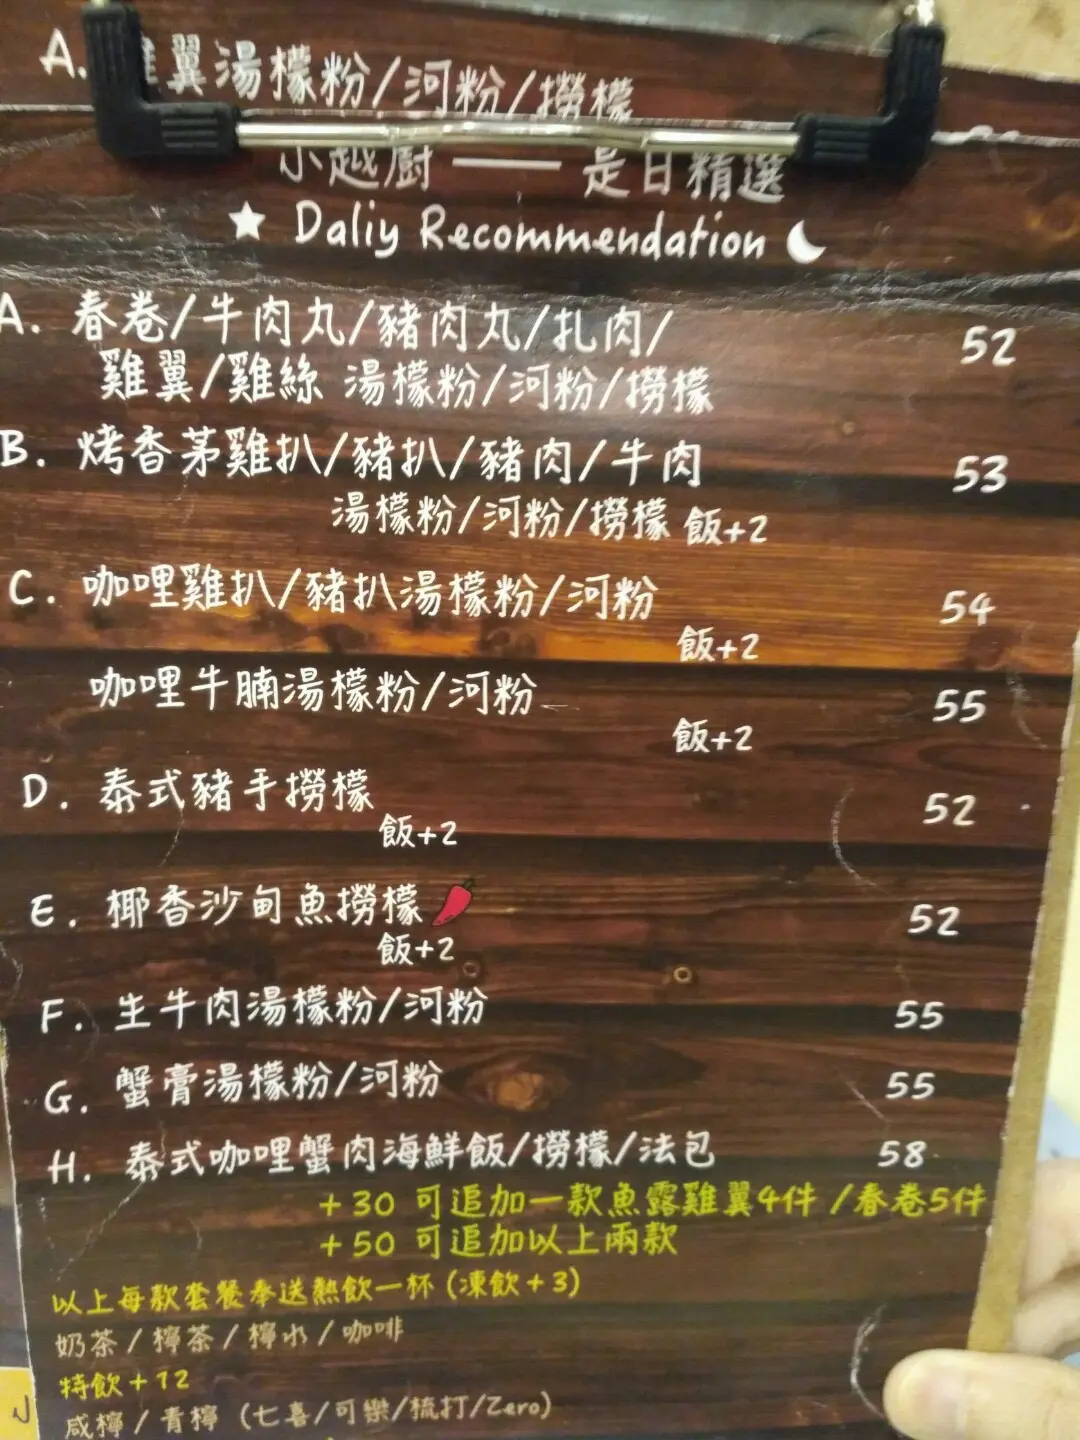 A. 雞翼湯檬粉/河粉/撈檬
小越廚 —— 是日精選
Daliy Recommendation
A. 春卷/牛肉丸/豬肉丸/扎肉/ 52
雞翼/雞絲 湯檬粉/河粉/撈檬
B. 烤香茅雞扒/豬扒/豬肉/牛肉 53
湯檬粉/河粉/撈檬 飯+2
C. 咖哩雞扒/豬扒湯檬粉/河粉 54
飯+2
咖哩牛腩湯檬粉/河粉 55
飯+2
D. 泰式豬手撈檬 52
飯+2
E. 椰香沙甸魚撈檬 52
飯+2
F. 生牛肉湯檬粉/河粉 55
G. 蟹膏湯檬粉/河粉 55
H. 泰式咖哩蟹肉海鮮飯/撈檬/法包 58
+30 可追加一款魚露雞翼4件 /春卷5件
+50 可追加以上兩款
以上每款套餐奉送熱飲一杯 (凍飲+3)
奶茶/檸茶/檸水/咖啡
特飲+12
咸檸/青檸 (七喜/可樂/梳打/Zero)